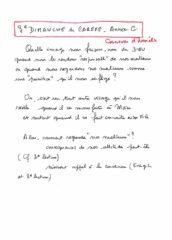 3e DIMANCHE de CARÊME, Année C
Canevas d'homélie
Quelle image nous faisons-nous de DIEU
quand nous le rendons "responsable" de nos malheurs
ou quand nous regardons nos malheurs comme
une "punition" qu'il nous inflige ?
Or, c'est un tout autre visage qu'il nous
révèle quand il se manifeste à Moïse
et surtout quand il se fait connaître en son Fils
Alors, comment regarder "nos malheurs" ?
conséquences de nos
(cf. 2e lecture)
appel à la conversion (Évangile
et 2e lecture)